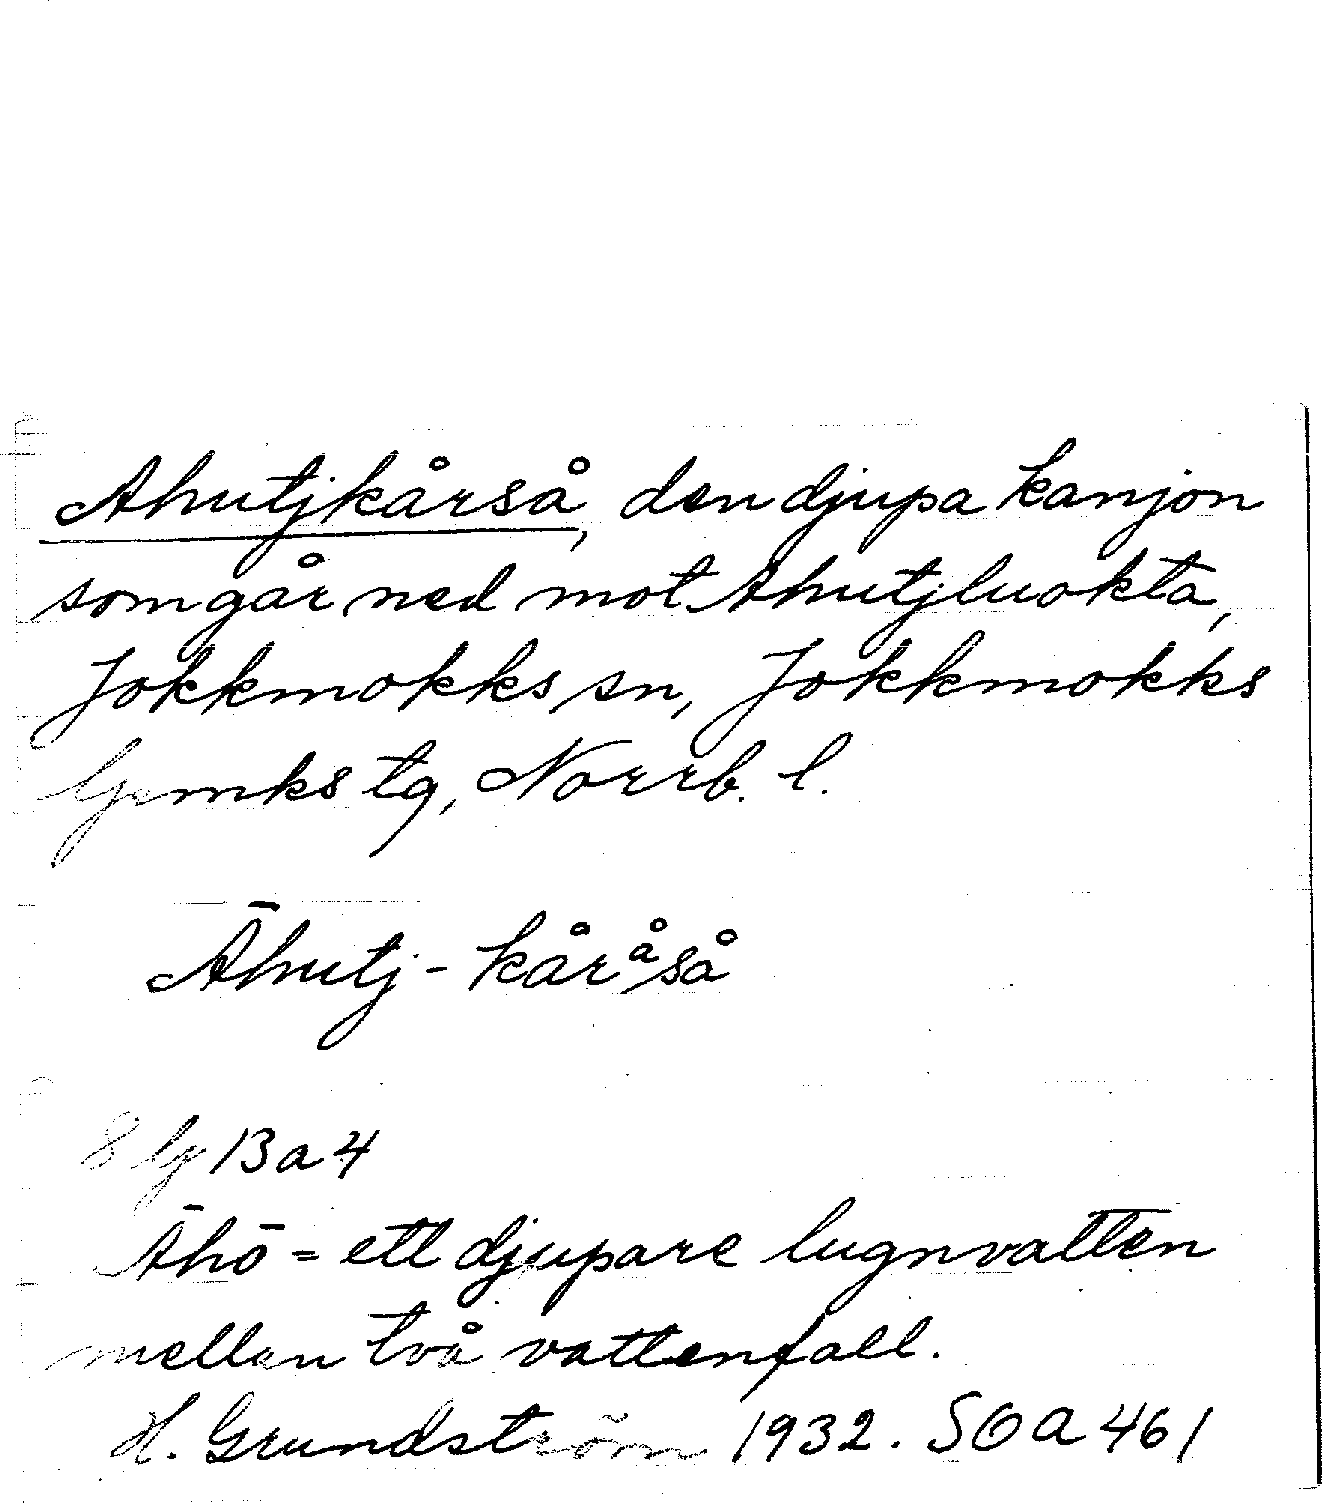 Ahutjkårså, den djupa kanjon
som går ned mot Ahutjluokta,
Jokkmokks sn, Jokkmokks
lpmks tg, Norrb. l.
Āhutj-kåråså
13a4
Āhō = ett djupare lugnvatten
mellan två vattenfall.
H. Grundström 1932. SOA 461